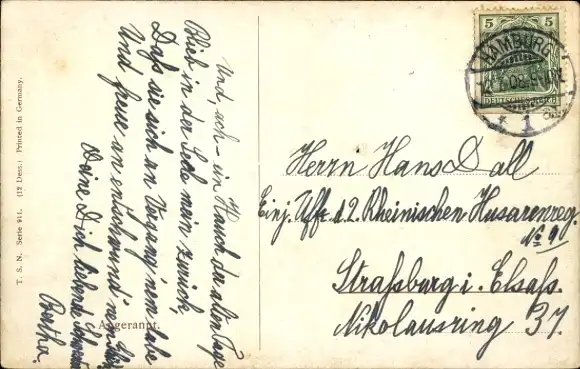 T. S. N. Serie 911. (12 Dess.) Printed in Germany.
Und, ach – im Hauch der alten Tage
Blieb in der Seele mein zurück,
Daß sie sich an Vergang'nem labe
Und freue an entschwund'nem
Deine Dich liebende Schwester
Bertha.
Angerannt.
5 5
HAMBURG
1
DEUTSCHES REICH
Herrn Hans Dall
Einj. Uffz. d. 2. Rheinischen Husarenreg.
No 9.
Straßburg i. Elsaß.
Nikolausring 37.